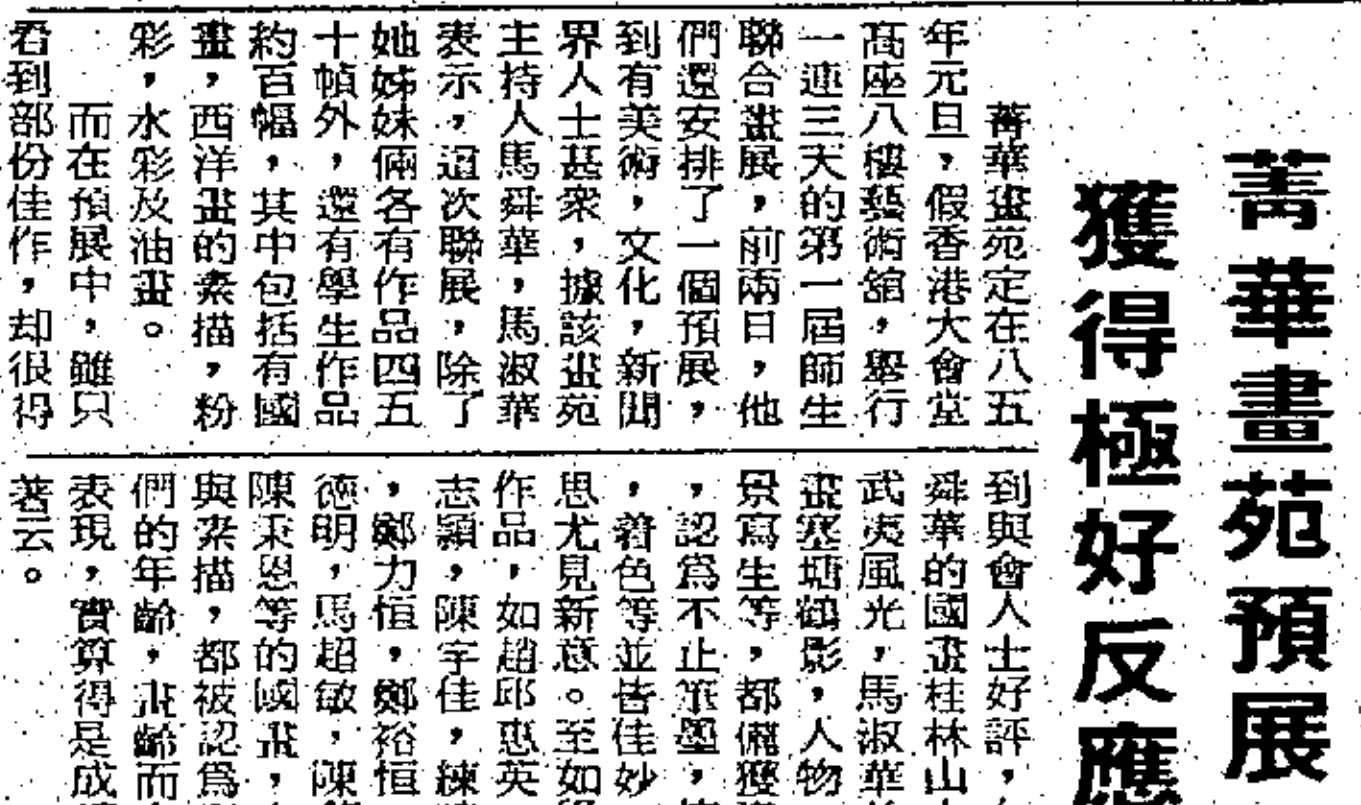 菁華畫苑預展
獲得極好反應
菁華畫苑定在八五
年元旦，假香港大會堂
高座八樓藝術舘，舉行
一連三天的第一屆師生
聯合畫展，前兩日，他
們還安排了一個預展，
到有美術，文化，新聞
界人士甚衆，據該畫苑
主持人馬舜華，馬淑華
表示，這次聯展，除了
她姊妹倆各有作品四五
十幀外，還有學生作品
約百幅，其中包括有國
畫，西洋畫的素描，粉
彩，水彩及油畫。
而在預展中，雖只
看到部份佳作，却很得
到與會人士好評，
舜華的國畫桂林山
武夷風光，馬淑華
畫塞塘鶴影，人物
景寫生等，都備獲
，認爲不止筆墨，
，着色等並皆佳妙
思尤見新意。至如
作品，如趙邱惠英
志穎，陳宇佳，練
，鄭力恒，鄭裕恒
德明，馬超敏，陳
陳秉恩等的國畫，
與素描，都被認爲
們的年齡，畫齡而
表現，實算得是成
著云。